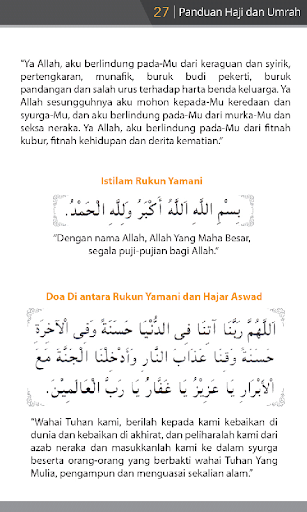 27 | Panduan Haji dan Umrah
"Ya Allah, aku berlindung pada-Mu dari keraguan dan syirik,
pertengkaran, munafik, buruk budi pekerti, buruk
pandangan dan salah urus terhadap harta benda keluarga. Ya
Allah sesungguhnya aku mohon kepada-Mu keredaan dan
syurga-Mu, dan aku berlindung pada-Mu dari murka-Mu dan
seksa neraka. Ya Allah, aku berlindung pada-Mu dari fitnah
kubur, fitnah kehidupan dan derita kematian."
Istilam Rukun Yamani
بِسْمِ اللَّهِ اَللَّهُ أَكْبَرُ وَلِلَّهِ الْحَمْدُ.
"Dengan nama Allah, Allah Yang Maha Besar,
segala puji-pujian bagi Allah."
Doa Di antara Rukun Yamani dan Hajar Aswad
اَللَّهُمَّ رَبَّنَا آتِنَا فِي الدُّنْيَا حَسَنَةً وَفِي الْآخِرَةِ
حَسَنَةً وَقِنَا عَذَابَ النَّارِ وَأَدْخِلْنَا الْجَنَّةَ مَعَ
الْأَبْرَارِ يَا عَزِيْزُ يَا غَفَّارُ يَا رَبَّ الْعَالَمِيْنَ.
"Wahai Tuhan kami, berilah kepada kami kebaikan di
dunia dan kebaikan di akhirat, dan peliharalah kami dari
azab neraka dan masukkanlah kami ke dalam syurga
beserta orang-orang yang berbakti wahai Tuhan Yang
Mulia, pengampun dan menguasai sekalian alam."